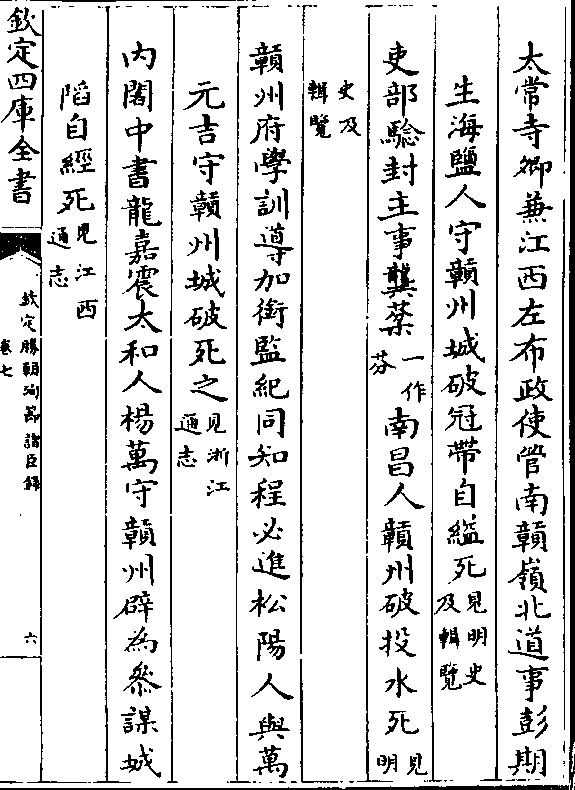 太常寺卿兼江西左布政使管南贛嶺北道事彭期
生海鹽人守贛州城破冠帶自縊死見明史及輯覽
吏部驗封主事龔棻一作芬南昌人贛州破投水死見明
史及輯覽
贛州府學訓導加銜監紀同知程必進松陽人與萬
元吉守贛州城破死之見浙江通志
內閣中書龍嘉震太和人楊萬守贛州辟為參謀城
陷自經死見江西通志
欽定四庫全書
欽定勝朝殉節諸臣錄
卷七
六